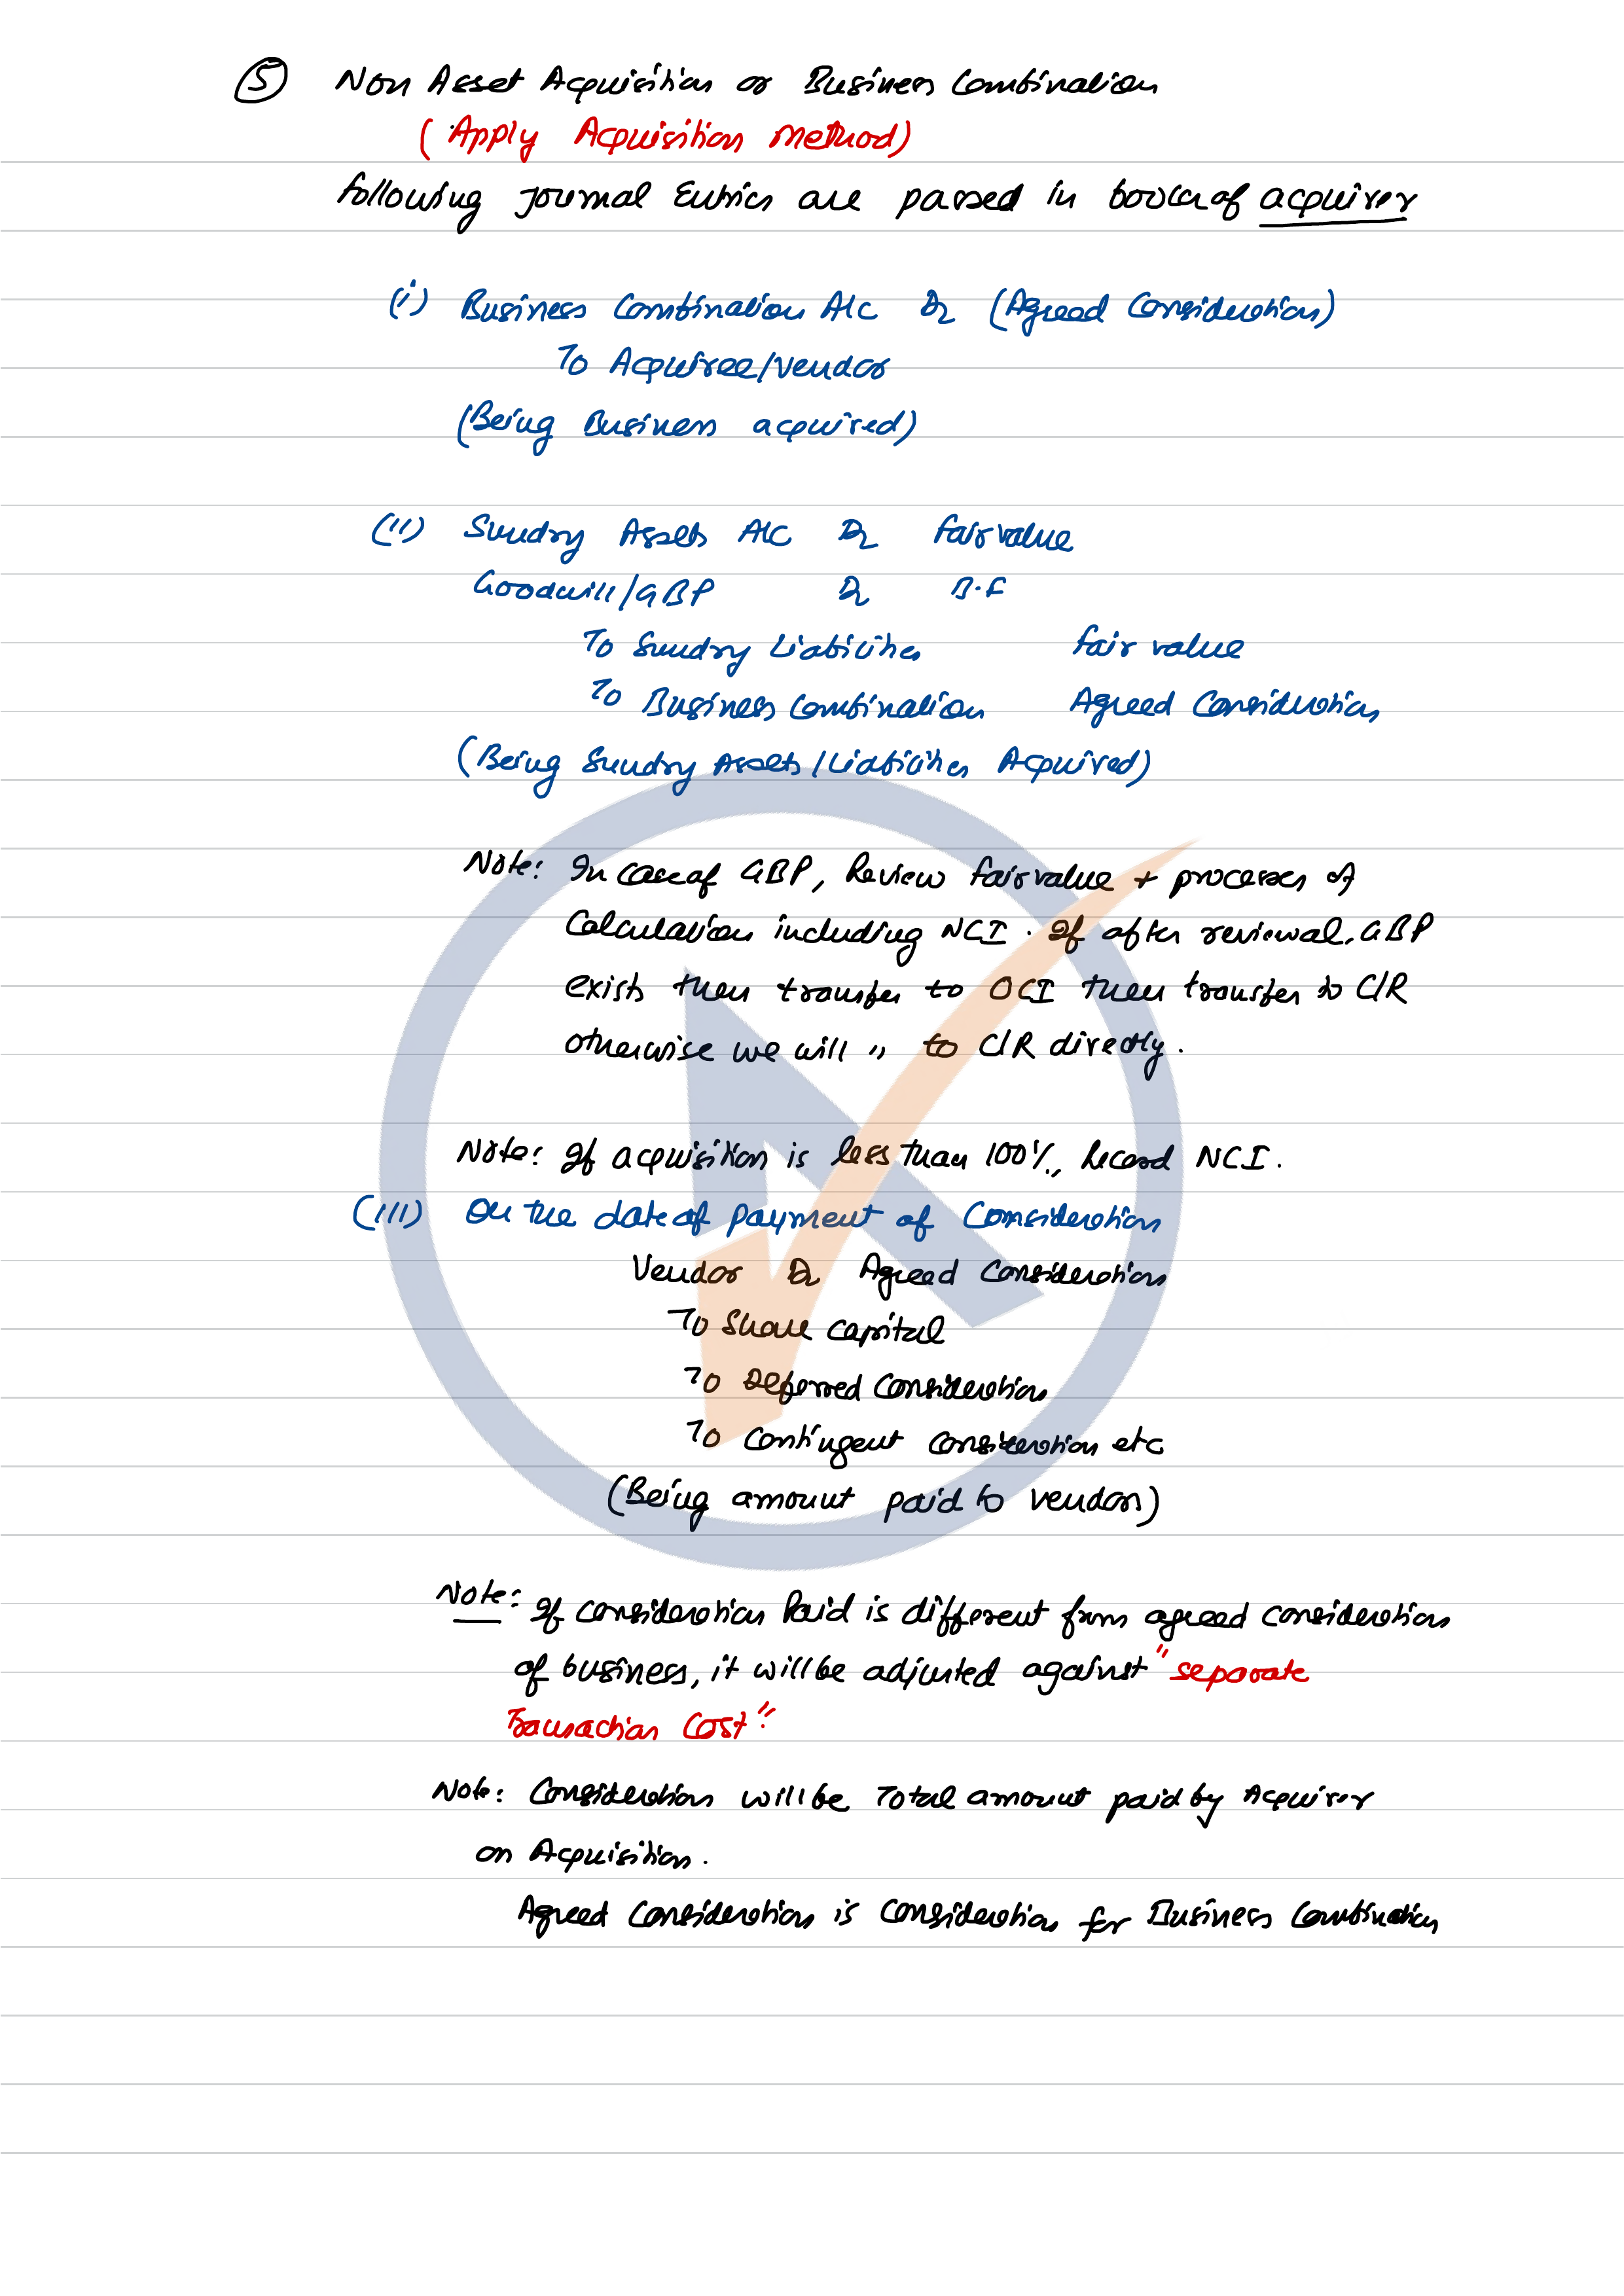 ⑤ Non Asset Acquisition or Business Combination
(Apply Acquisition Method)
following Journal Entries are passed in books of acquirer
(i) Business Combination A/c Dr (Agreed Consideration)
To Acquiree/Vendor
(Being Business acquired)
(ii) Sundry Assets A/c Dr fair value
Goodwill/GBP Dr B.F
To Sundry Liabilities fair value
To Business Combination Agreed Consideration
(Being Sundry Assets/Liabilities Acquired)
Note: In case of GBP, Review fair value + processes of
Calculation including NCI. If after reviewal, GBP
exists then transfer to OCI then transfer to C/R
otherwise we will " to C/R directly.
Note: If acquisition is less than 100%, Record NCI.
(iii) On the date of payment of Consideration
Vendor Dr Agreed Consideration
To Share capital
To Deferred Consideration
To Contingent consideration etc
(Being amount paid to vendor)
Note: If consideration Paid is different from agreed consideration
of business, it will be adjusted against "separate
Transaction Cost"
Note: Consideration will be Total amount paid by Acquirer
on Acquisition.
Agreed Consideration is Consideration for Business Combination